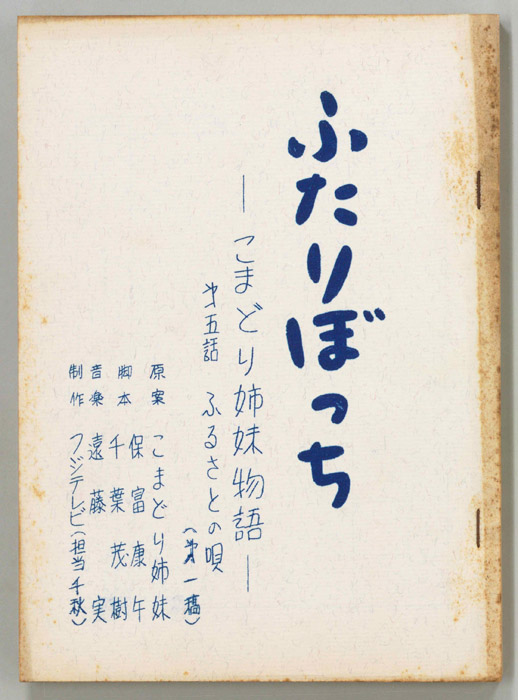 ふたりぼっち
―こまどり姉妹物語―
才五話 ふるさとの唄
(才一稿)
原案 こまどり姉妹
保富康午
脚本 千葉茂樹
音楽 遠藤実
制作 フジテレビ(担当千秋)